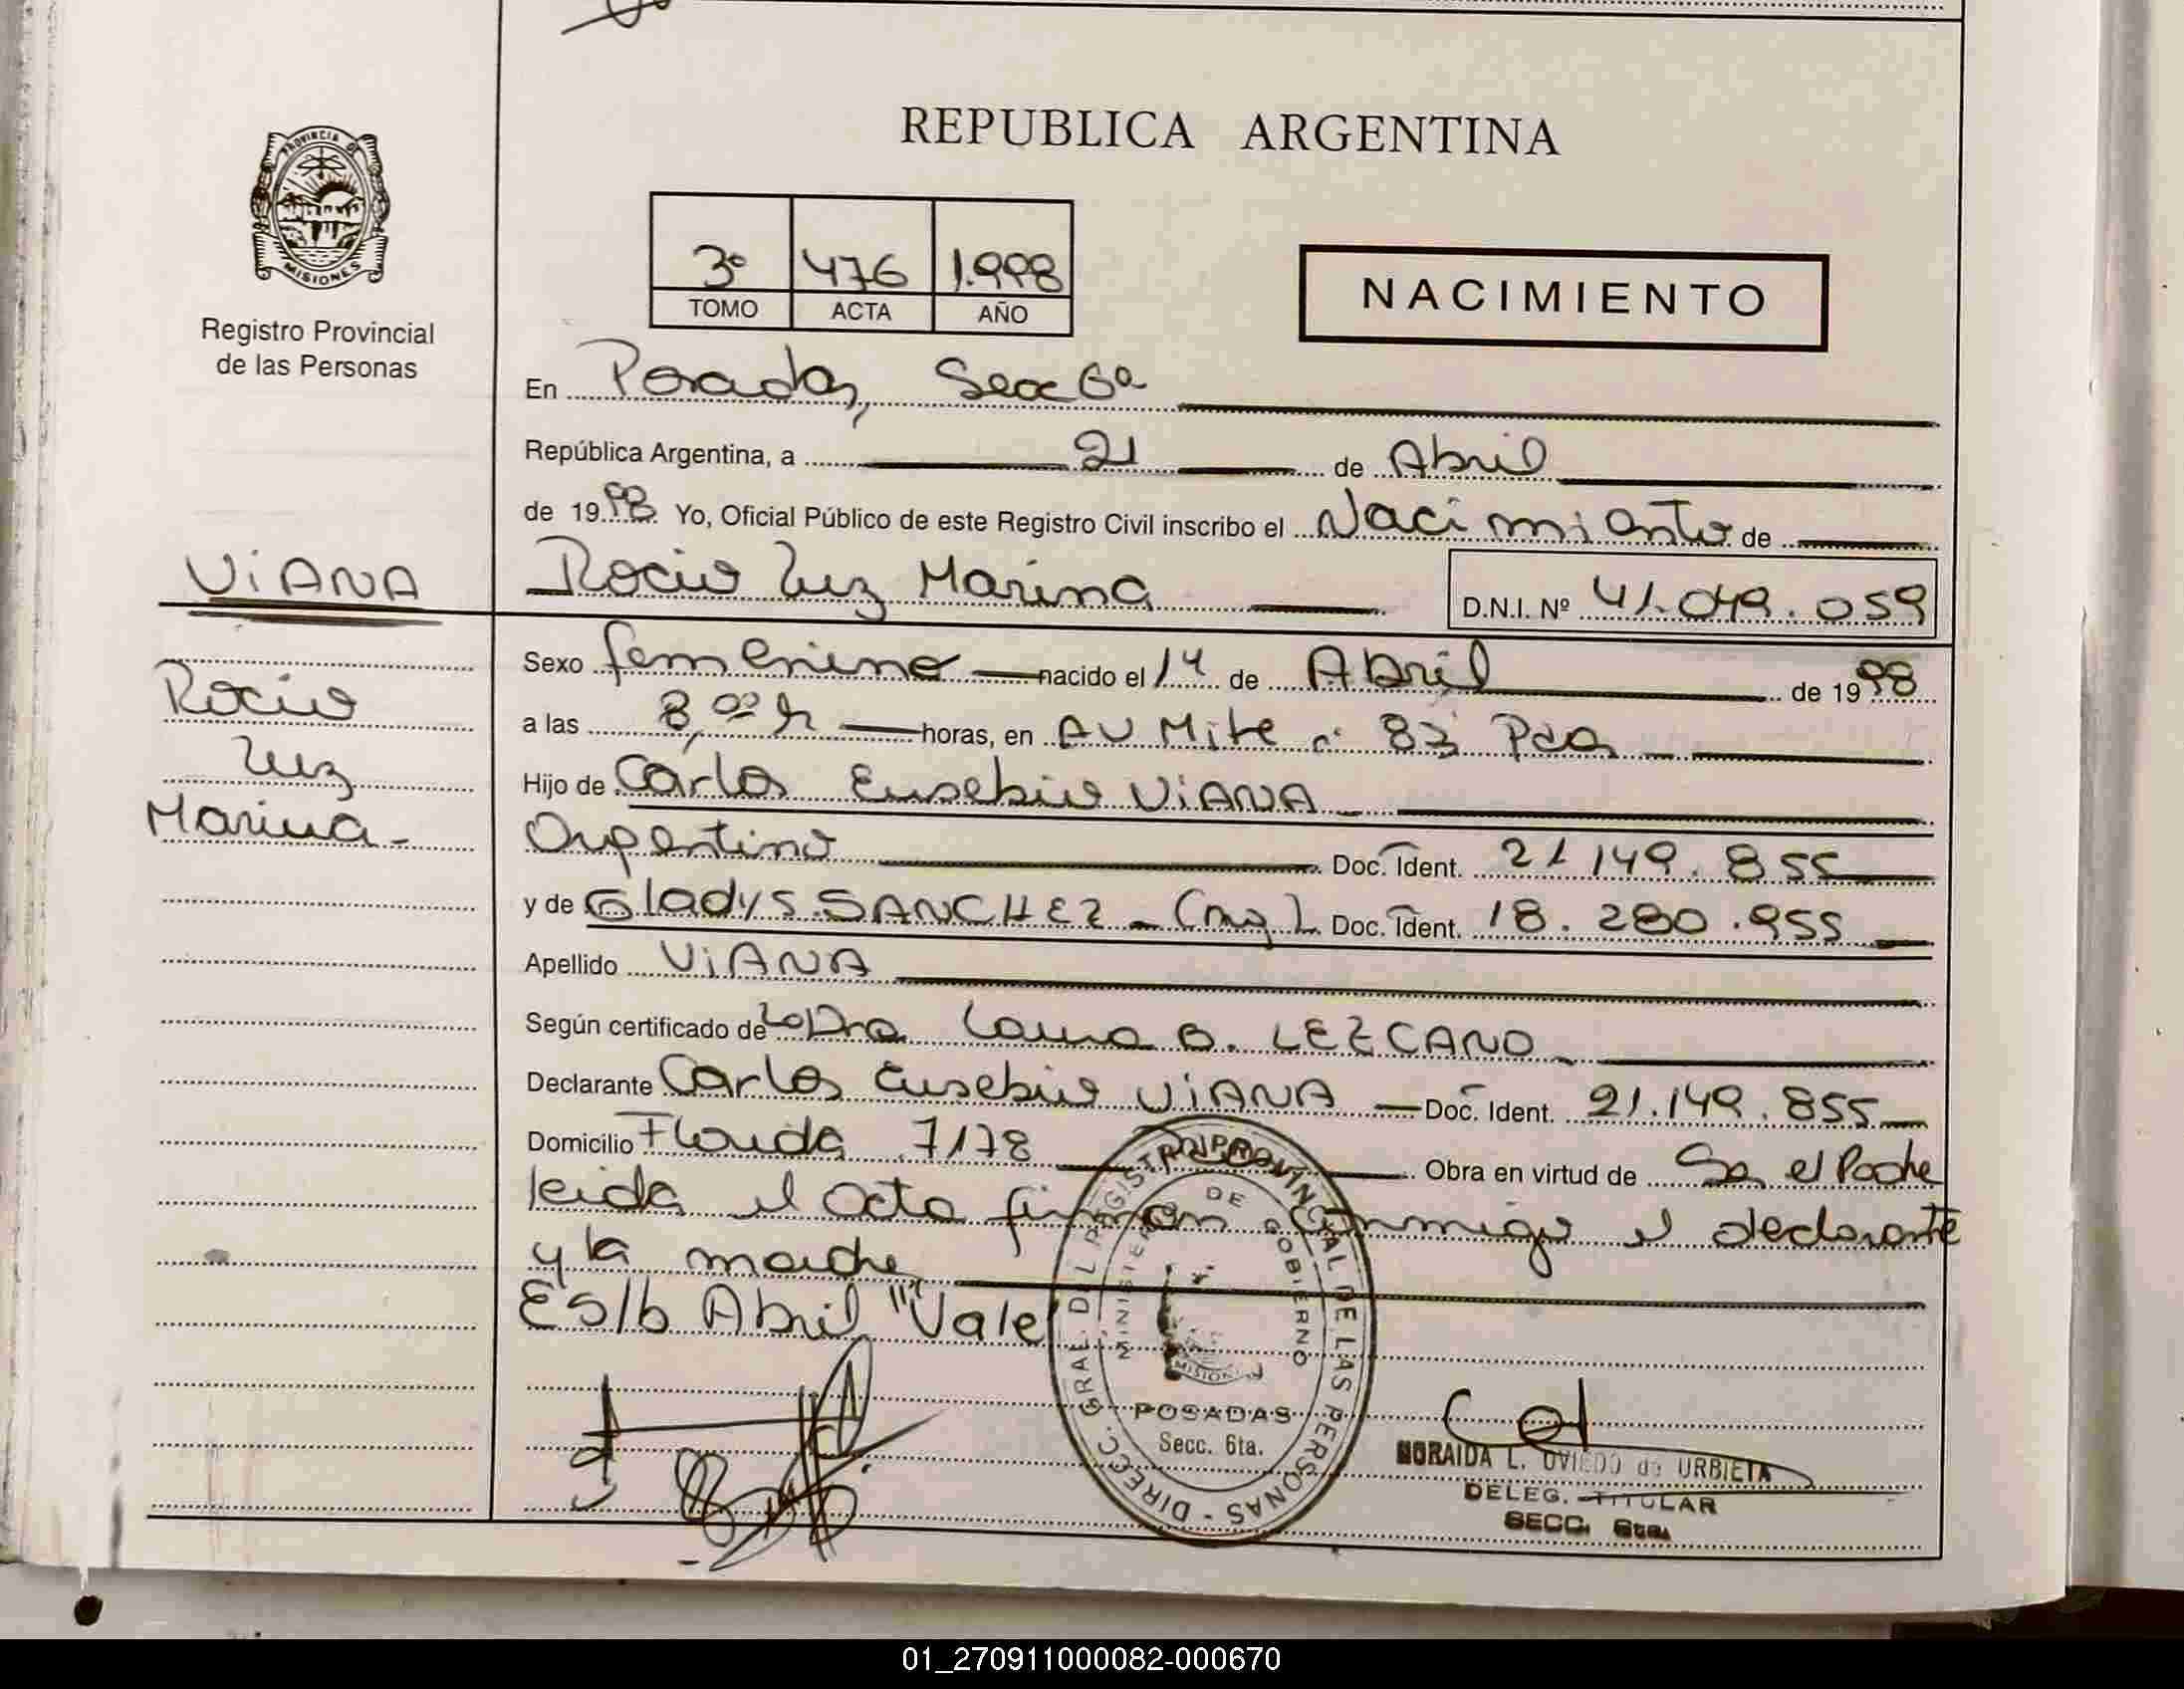 REPUBLICA ARGENTINA
PROVINCIA DE
MISIONES
Registro Provincial
de las Personas
3º 476 1.998
TOMO ACTA AÑO
NACIMIENTO
En Posadas, Secc 6ª
República Argentina, a 21 de Abril
de 1998 Yo, Oficial Público de este Registro Civil inscribo el Nacimiento de
VIANA
Rocio Luz Marina D.N.I. Nº 41.049.059
Sexo femenino nacido el 14 de Abril de 1998
Rocio
a las 8,00 h horas, en AV Mitre nº 83 Pdas
Luz
Hijo de Carlos Eusebio VIANA
Marina-
Argentino Doc. Ident. 21.149.855
y de Gladys SANCHEZ - (arg) Doc. Ident. 18.280.955
Apellido VIANA
Según certificado de La Dra Laura B. LEZCANO
Declarante Carlos Eusebio VIANA Doc. Ident. 21.149.855
Domicilio Florida 7178 Obra en virtud de Ser el Padre
leida el acta firman conmigo el declarante
y la madre
Es/b Abril "Vale"
DIRECC. GRAL. DEL REGISTRO PROVINCIAL DE LAS PERSONAS -
MINISTERIO DE GOBIERNO
MISIONES
POSADAS
Secc. 6ta.
NORAIDA L. OVIEDO de URBIETA
DELEG. TITULAR
SECC. 6ta.
01_270911000082-000670